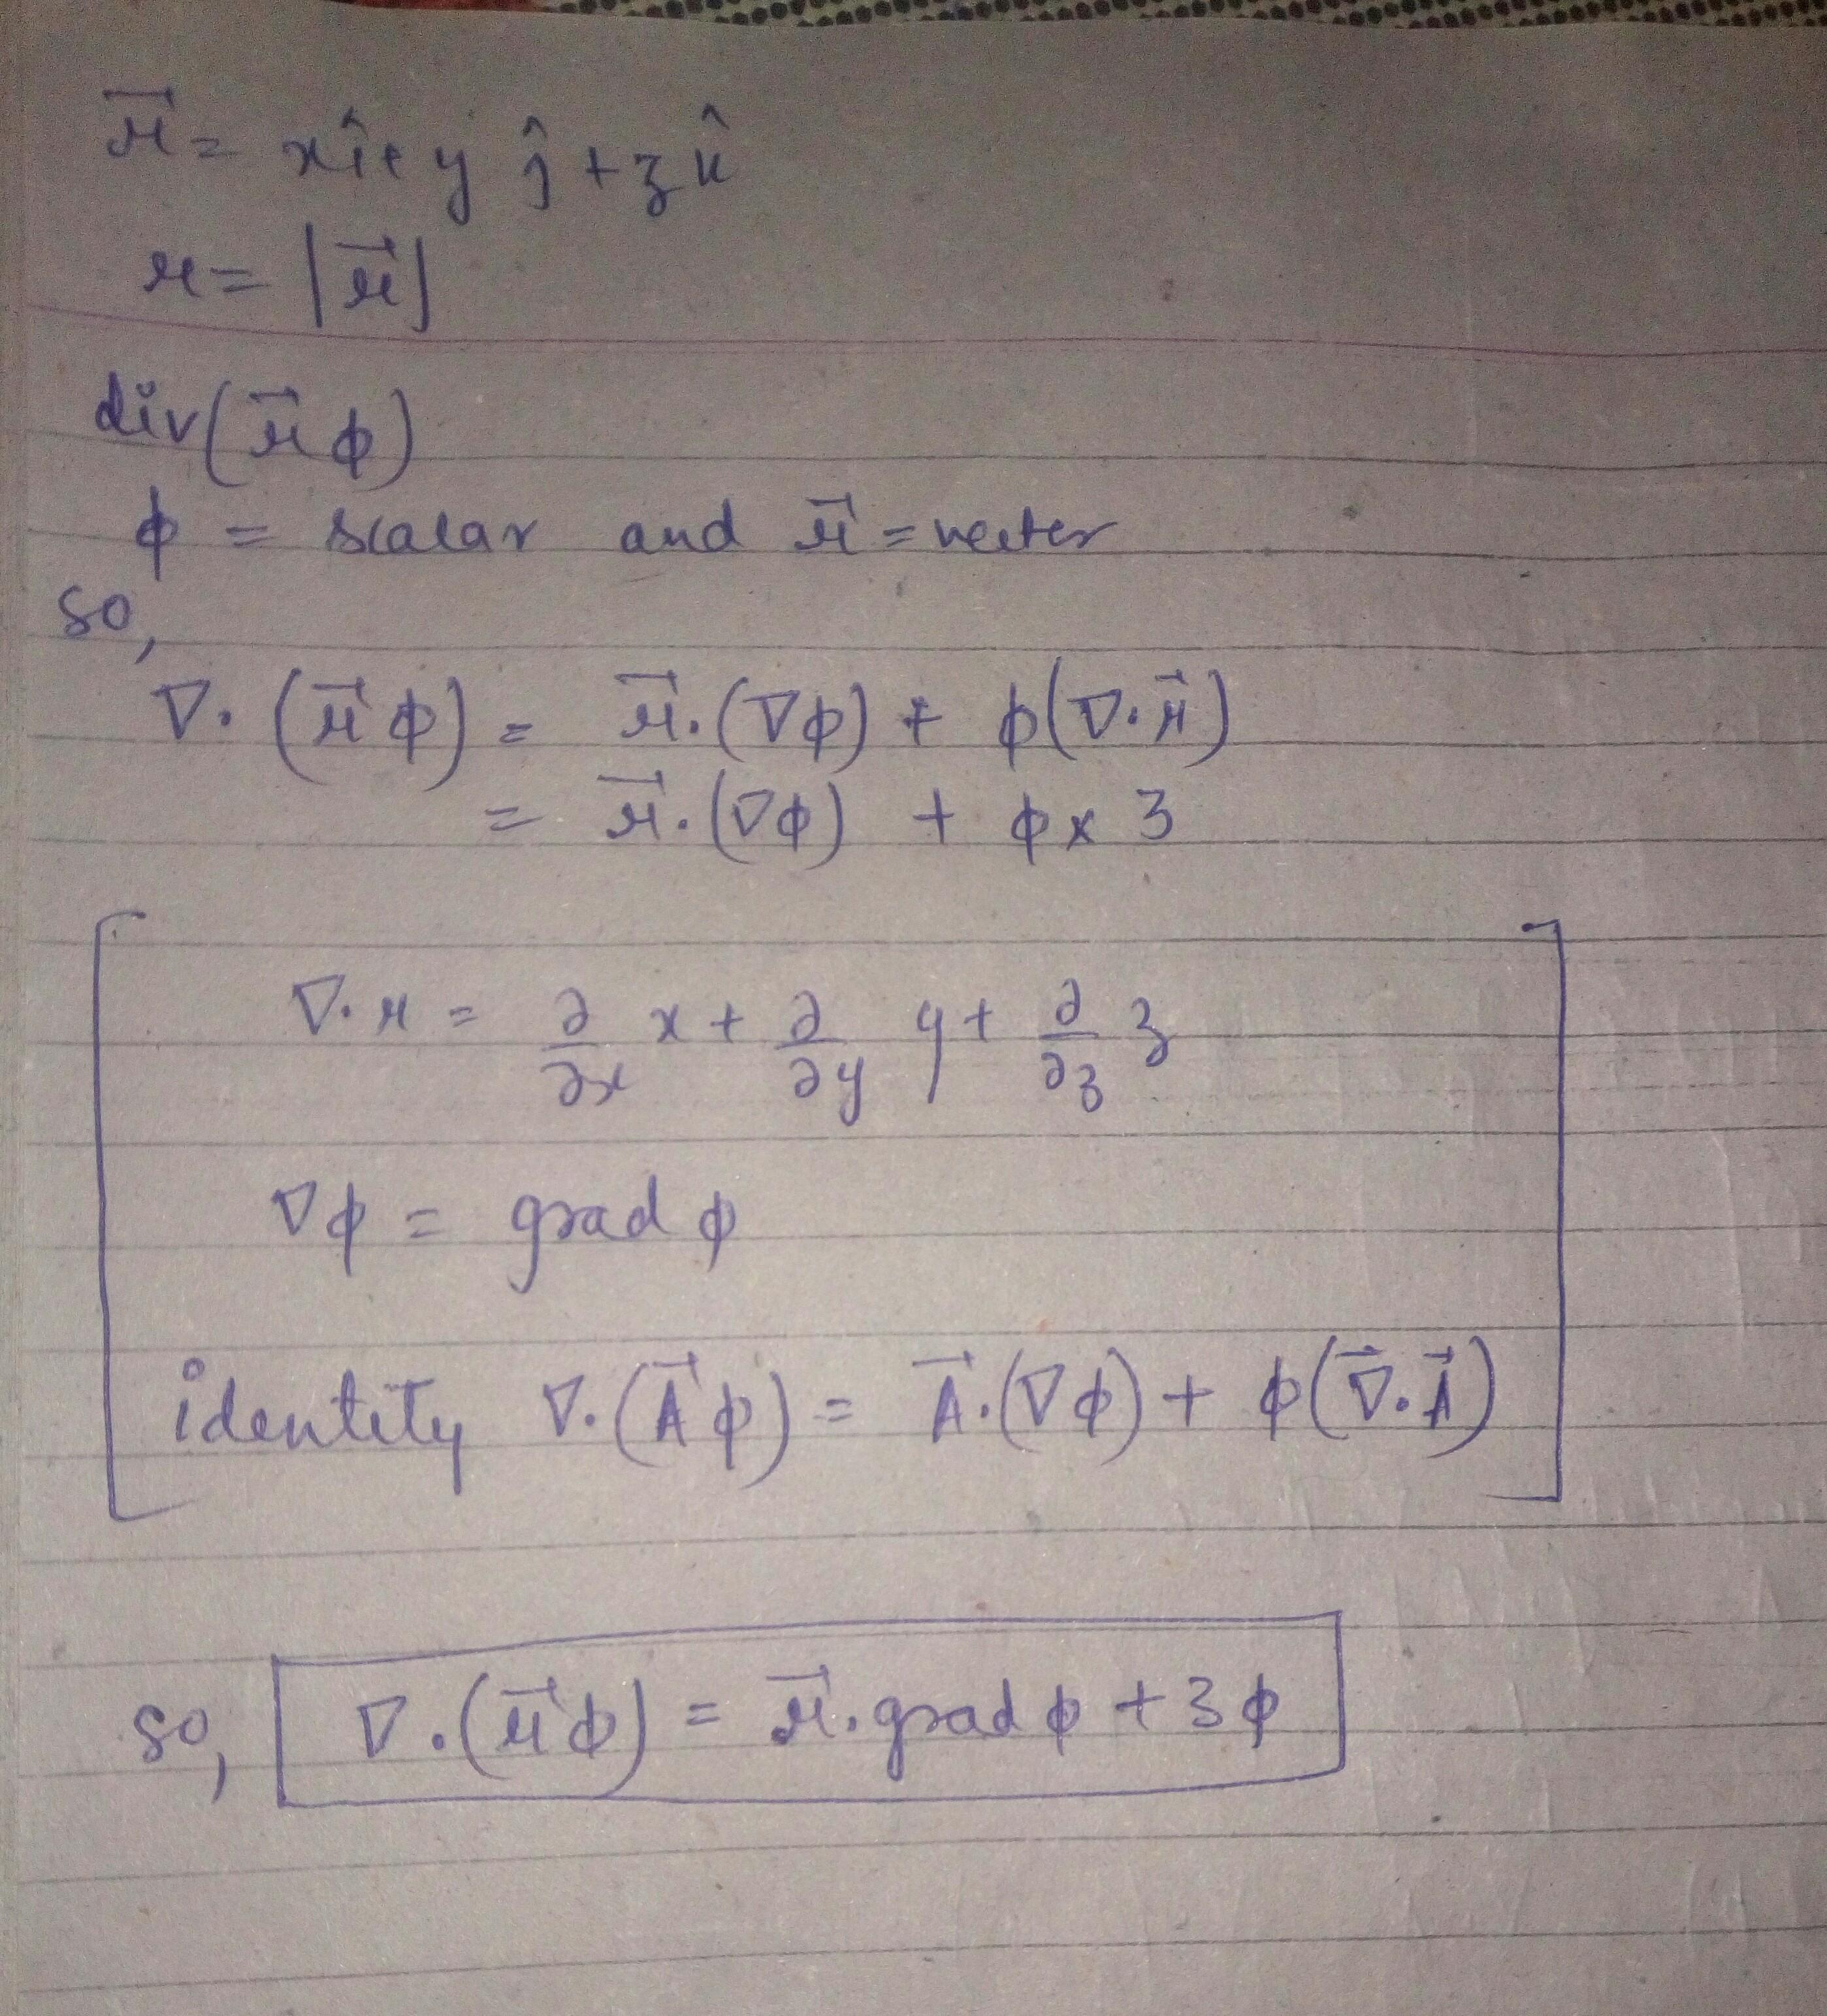 r⃗ = xî + y ĵ + z k̂
r = |r⃗|
div(r⃗ ϕ)
ϕ = scalar and r⃗ = vector
so,
∇. (r⃗ ϕ) = r⃗.(∇ϕ) + ϕ(∇.r⃗)
= r⃗.(∇ϕ) + ϕ x 3
∇.r = ∂/∂x x + ∂/∂y y + ∂/∂z z
∇ϕ = grad ϕ
identity ∇.(A⃗ ϕ) = A⃗.(∇ϕ) + ϕ(∇⃗.A⃗)
so, ∇.(r⃗ϕ) = r⃗.grad ϕ + 3ϕ